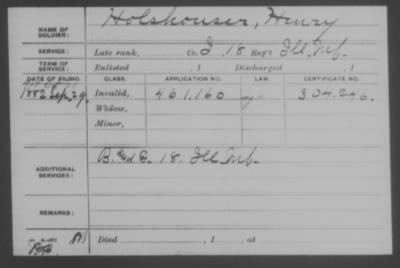 NAME OF SOLDIER: Holshouser, Henry
SERVICE: Late rank, Co. I 18 Reg't Ill. Inf.
TERM OF SERVICE: Enlisted , 1 Discharged , 1
DATE OF FILING. CLASS. APPLICATION NO. LAW. CERTIFICATE NO.
1882 Sep. 29. Invalid, 461.160 304.246.
Widow,
Minor,
ADDITIONAL SERVICES: B. and D. 18. Ill. Inf.
REMARKS:
Died , 1 , at